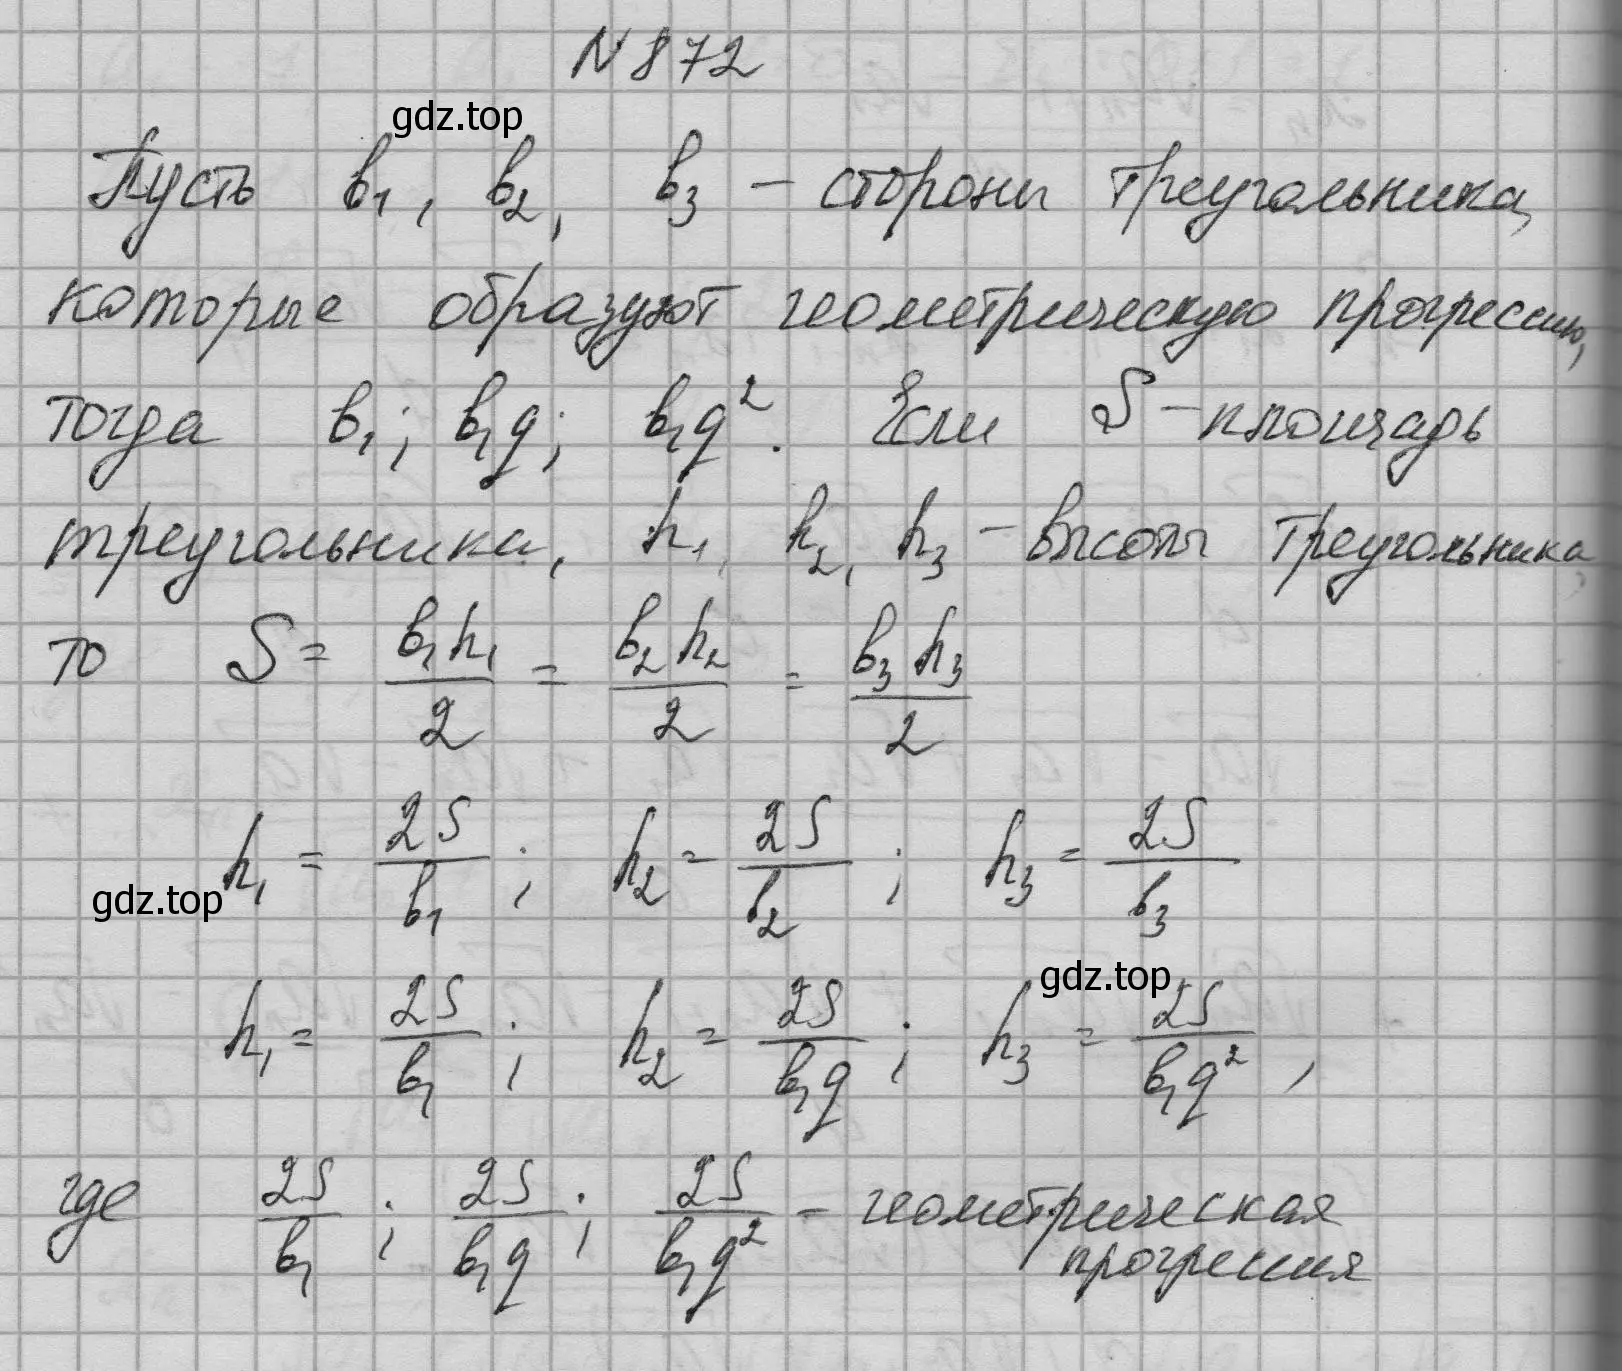 N 872
gdz.top
Пусть b₁, b₂, b₃ – стороны треугольника,
которые образуют геометрическую прогрессию,
тогда b₁; b₁q; b₁q². Если S – площадь
треугольника, h₁, h₂, h₃ – высоты треугольника,
то S = b₁h₁/2 = b₂h₂/2 = b₃h₃/2
h₁ = 2S/b₁; h₂ = 2S/b₂; h₃ = 2S/b₃
gdz.top
gdz.top
h₁ = 2S/b₁; h₂ = 2S/b₁q; h₃ = 2S/b₁q²,
где 2S/b₁; 2S/b₁q; 2S/b₁q² – геометрическая
прогрессия